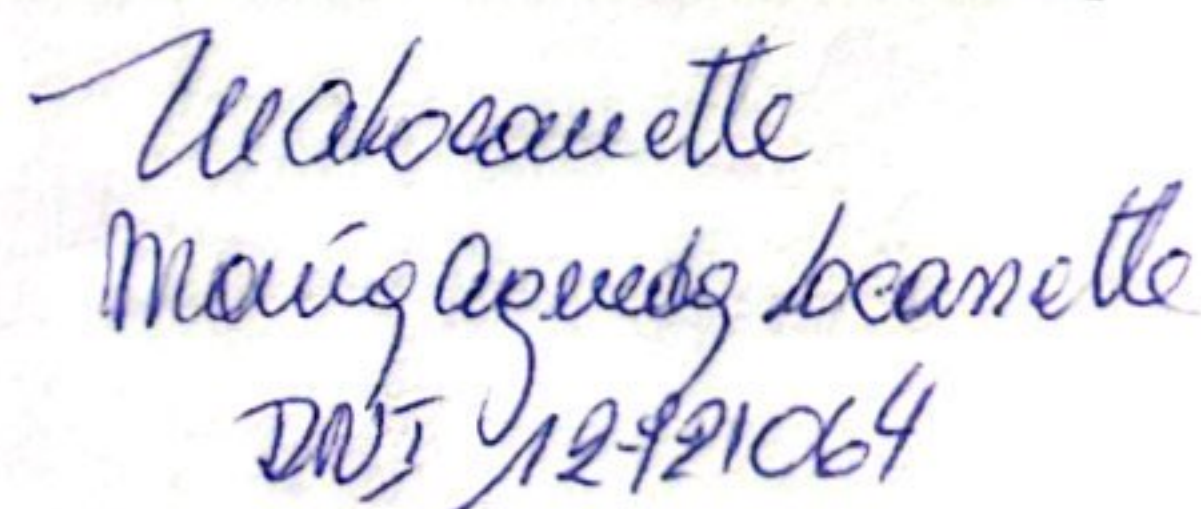 MALocanette
María Agueda Locannette
DNI 12-921064